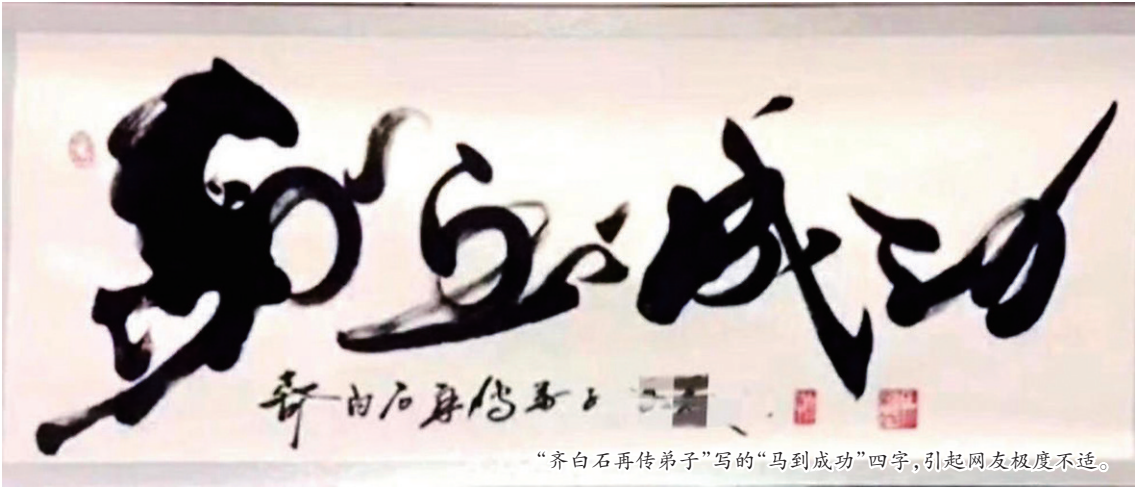 马到成功
齐白石再传弟子
“齐白石再传弟子”写的“马到成功”四字,引起网友极度不适。